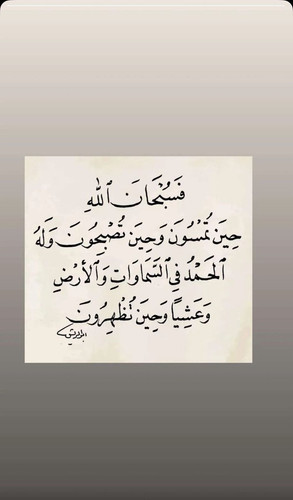 فَسُبْحَانَ ٱللهِ
حِينَ تُمْسُونَ وَحِينَ تُصْبِحُونَ وَلَهُ
الحَمْدُ فِي السَّمَاوَاتِ وَالأَرْضِ
وَعَشِيًّا وَحِينَ تُظْهِرُونَ